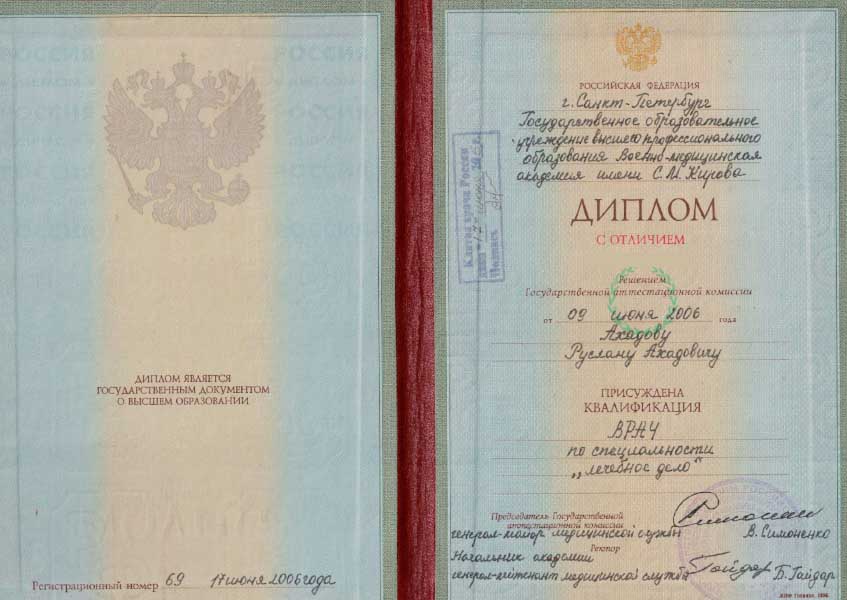 ДИПЛОМ ЯВЛЯЕТСЯ
ГОСУДАРСТВЕННЫМ ДОКУМЕНТОМ
О ВЫСШЕМ ОБРАЗОВАНИИ
Регистрационный номер 69 17 июня 2006 года
РОССИЙСКАЯ ФЕДЕРАЦИЯ
г. Санкт-Петербург
Государственное образовательное
учреждение высшего профессионального
образования Военно-медицинская
академия имени С.М. Кирова
ДИПЛОМ
С ОТЛИЧИЕМ
Решением
Государственной аттестационной комиссии
от 09 июня 2006 года
Ахадову
Руслану Ахадовичу
ПРИСУЖДЕНА
КВАЛИФИКАЦИЯ
ВРАЧ
по специальности
„лечебное дело"
Председатель Государственной
аттестационной комиссии
генерал-майор медицинской службы В. Симоненко
Ректор
Начальник академии
генерал-лейтенант медицинской службы Б. Гайдар
Клятва врача России
дана
Подпись
РОССИЯ
РОССИЯ